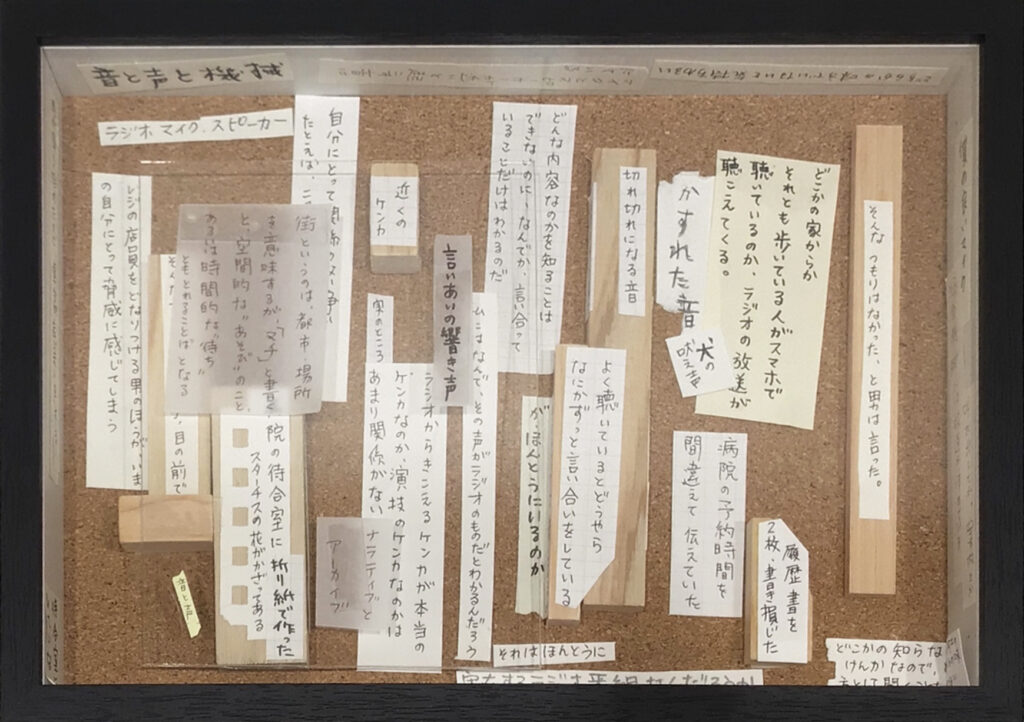 音と声と機械
どちらかの味方でいないと気持ちわるい
ラジオ、マイク、スピーカー
どこかの家からか
それとも歩いている人がスマホで
聴いているのか、ラジオの放送が
聴こえてくる。
そんな つもりはなかった、と男は言った。
かすれた音
犬の
吠え声
切れ切れになる音
どんな内容なのかを知ることは
できないのに、なんでか、言い合って
いることだけはわかるのだ
近くの
ケンカ
言いあいの響き声
自分にとって関係のない争い
たとえば、
街というのは、都市・場所
を意味するが、「マチ」と書く
と、空間的な“あそび”のこと、
あるいは時間的な“待ち”
ともとれることばとなる
レジの店員をどなりつける男のほうが、いま
の自分にとって脅威に感じてしまう
目の前で
院の待合室に 折り紙で作った
スターチスの花がかざってある
音と証
アーカイブ
ラジオからきこえるケンカが本当の
ケンカなのか、演技のケンカなのかは
実のところ
あまり関係がない
ナラティブと
なんで、その声がラジオのものだとわかるんだろう
が、ほんとうにいるのか
よく聴いているとどうやら
なにかずっと言い合いをしている
病院の予約時間を
間違えて伝えていた
履歴書を
2枚、書き損じた
それはほんとうに
どこかの知らな
けんかなので、